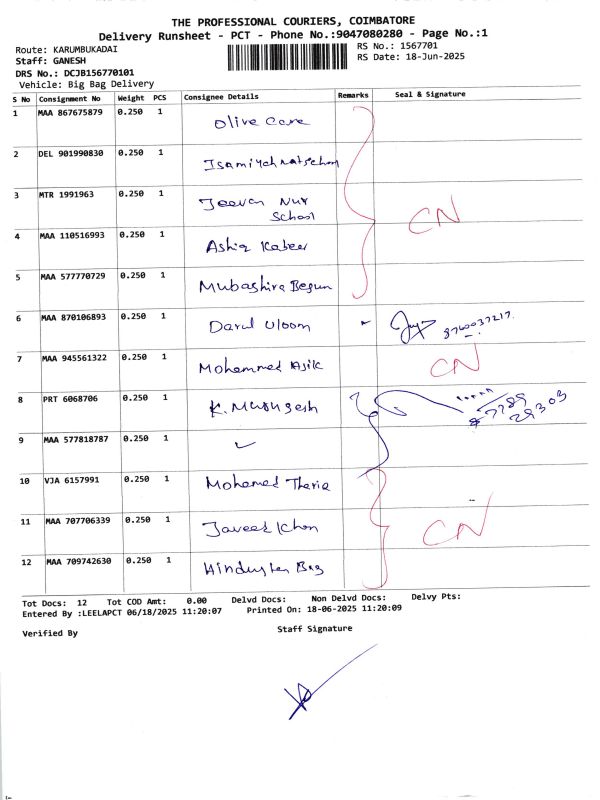 THE PROFESSIONAL COURIERS, COIMBATORE
Delivery Runsheet - PCT - Phone No.:9047080280 - Page No.:1
Route: KARUMBUKADAI
RS No.: 1567701
Staff: GANESH
RS Date: 18-Jun-2025
DRS No.: DCJB156770101
Vehicle: Big Bag Delivery
S No Consignment No Weight PCS Consignee Details Remarks Seal & Signature
1 MAA 867675879 0.250 1 Olive Care
2 DEL 901990830 0.250 1
3 MTR 1991963 0.250 1 Jeevan Nur
School
CN
4 MAA 110516993 0.250 1 Ashiq Kabeer
5 MAA 577770729 0.250 1 Mubashira Begum
6 MAA 870106893 0.250 1 Darul Uloom 8760037217.
7 MAA 945561322 0.250 1 Mohammed Asik CN
8 PRT 6068706 0.250 1 K. Murugesh
9 MAA 577818787 0.250 1
10 VJA 6157991 0.250 1 Mohamed
11 MAA 707706339 0.250 1 Javeed Khan CN
12 MAA 709742630 0.250 1 Bag
Tot Docs: 12 Tot COD Amt: 0.00 Delvd Docs: Non Delvd Docs: Delvy Pts:
Entered By :LEELAPCT 06/18/2025 11:20:07 Printed On: 18-06-2025 11:20:09
Verified By
Staff Signature